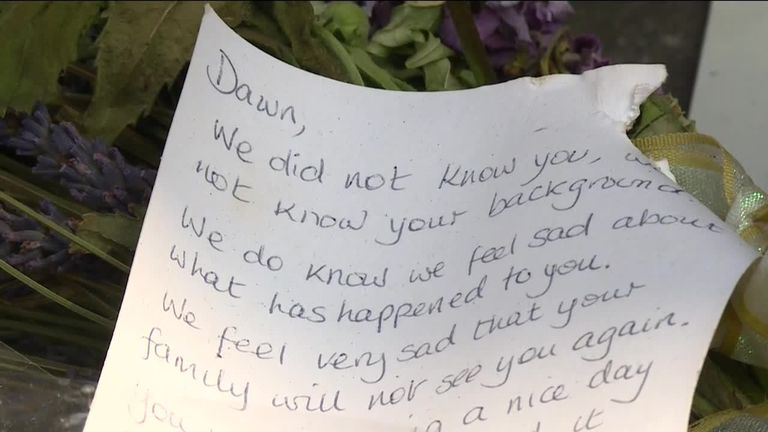 Dawn,
We did not know you,
not know your background.
We do know we feel sad about
what has happened to you.
We feel very sad that your
family will not see you again.
you a nice day
it